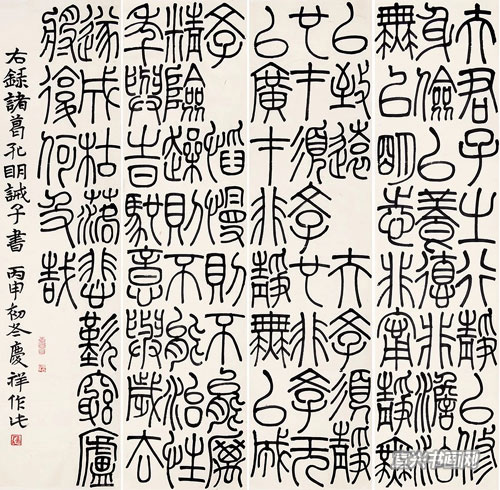 夫君子之行靜以修
身儉以養德非澹泊
無以明志非寧靜無
以致遠夫學須靜
也才須學也非學无
以廣才非靜無以成
學慆慢則不能勵
精險躁則不能治性
年與時馳意與歲去
遂成枯落悲歎窮廬
將復何及哉
右録諸葛孔明誡子書 丙申初冬慶祥作此